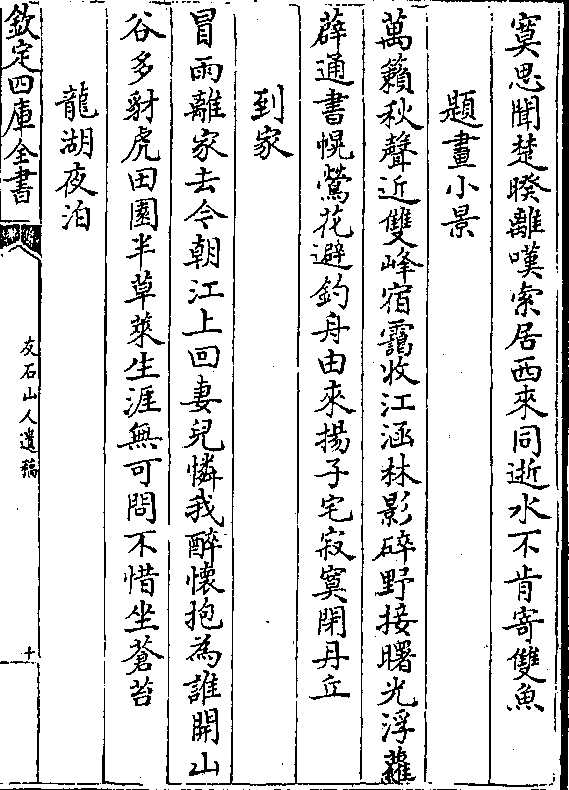 寞思聞楚睽離嘆索居西來同逝水不肯寄雙魚
題畫小景
萬籟秋聲近雙峰宿靄收江涵林影碎野接曙光浮蘿
薜通書幌鶯花避釣舟由來揚子宅寂寞閉丹丘
到家
冒雨離家去今朝江上回妻兒憐我醉懷抱為誰開山
谷多豺虎田園半草萊生涯無可問不惜坐蒼苔
龍湖夜泊
欽定四庫全書
友石山人遺稿
十